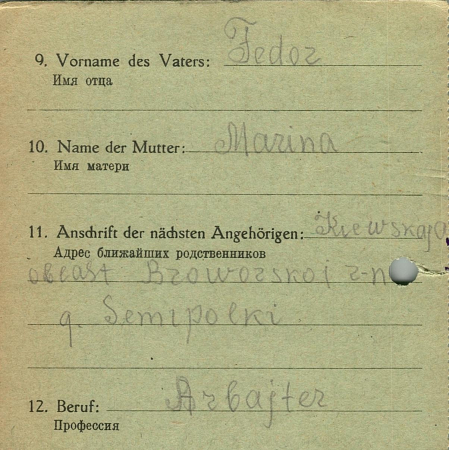 9. Vorname des Vaters: Fedor
Имя отца
10. Name der Mutter: Marina
Имя матери
11. Anschrift der nächsten Angehörigen: Kiewskaja
Адрес ближайших родственников
obɛast Broworskoi r-n
g. Semipolki
12. Beruf: Arbajter
Профессия